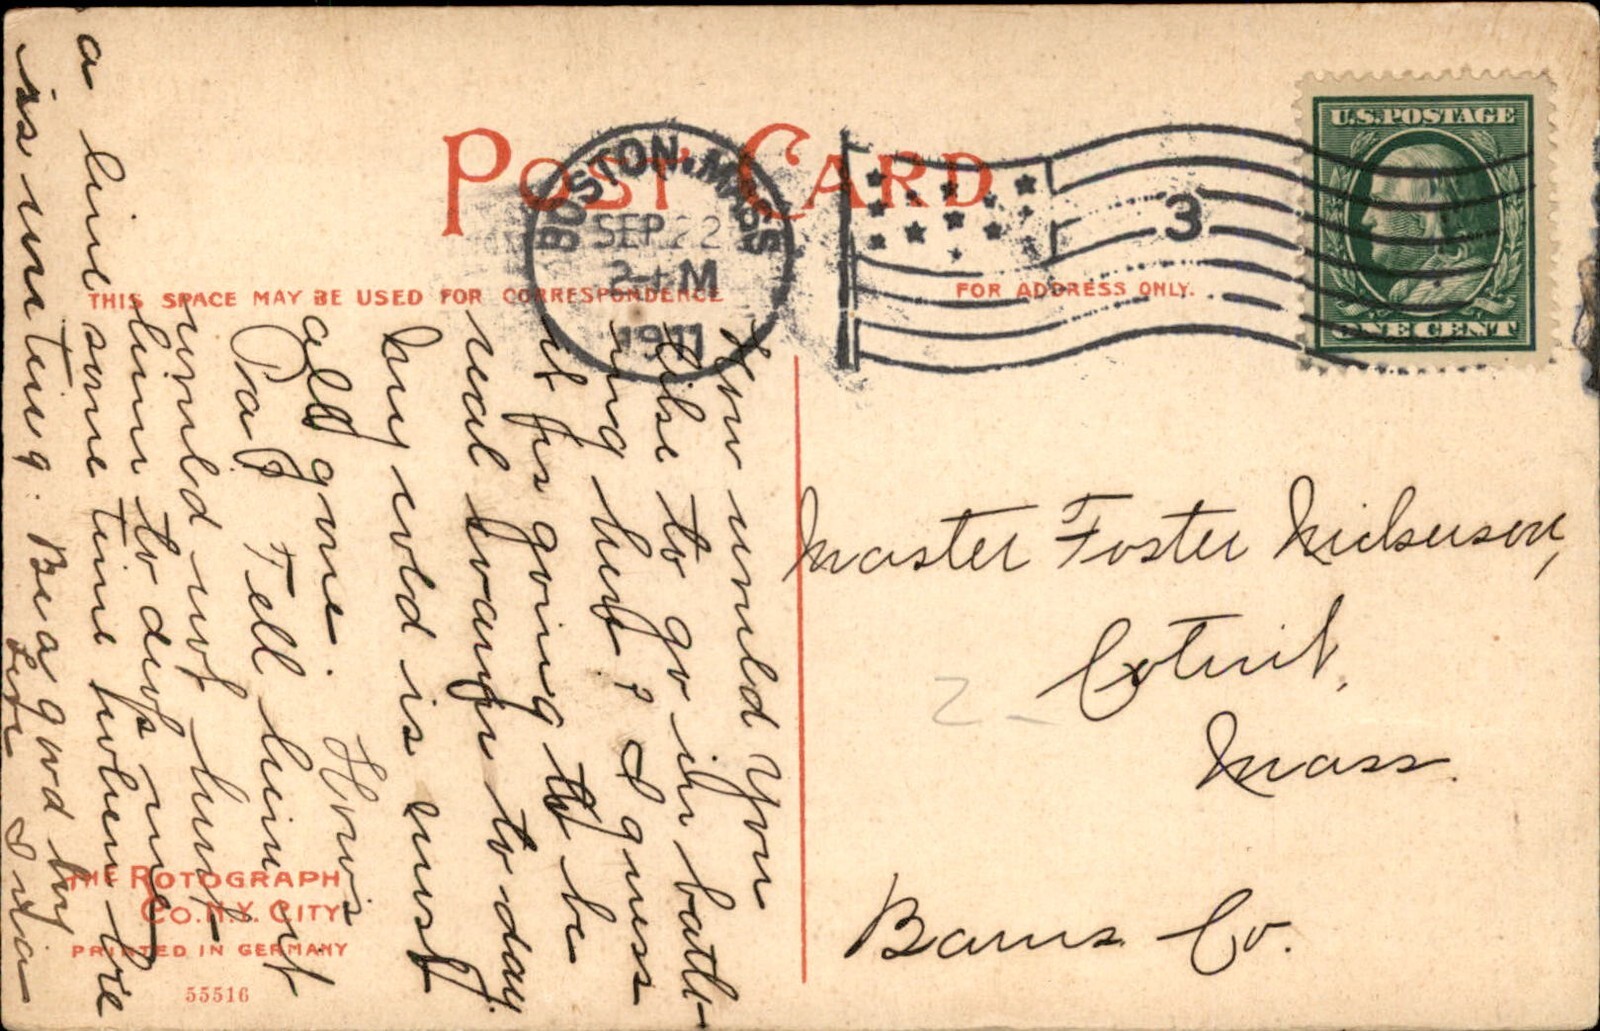 POST CARD
BOSTON, MASS
SEP 22
2 - M
1911
3
U.S. POSTAGE
ONE CENT
THIS SPACE MAY BE USED FOR CORRESPONDENCE
FOR ADDRESS ONLY.
How would you
like to go in bath-
ing here? I guess
it is going to be
real warm to day.
My cold is most
all gone. How is
Pa? Tell him it
would not hurt
him to drop me
a line some time when he
is writing. Be a good boy
Love
Master Foster Nickerson,
Cotuit,
Mass.
Barns. Co.
2 -
THE ROTOGRAPH
CO. N.Y. CITY
PRINTED IN GERMANY
55516